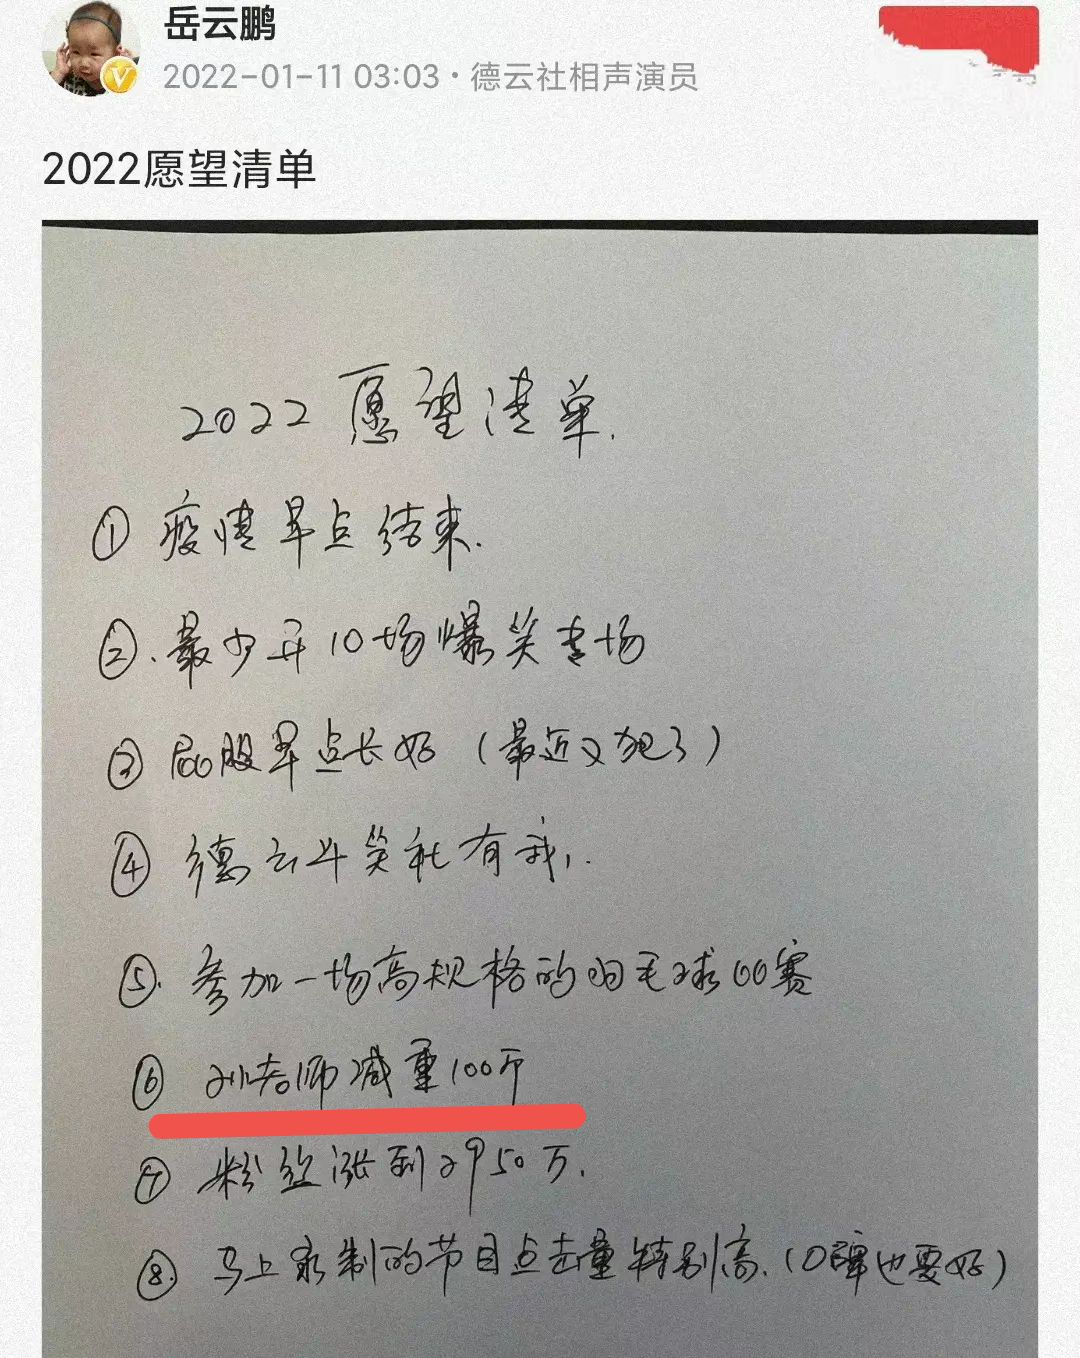 岳云鹏
2022-01-11 03:03 · 德云社相声演员
2022愿望清单
2022愿望清单.
① 疫情早点结束.
②. 最少开10场爆笑专场
③ 屁股早点长好（最近又犯了）
④ 德云斗笑社有我,.
⑤. 参加一场高规格的羽毛球比赛
⑥ 孙老师减重100斤
⑦ 粉丝涨到2950万.
⑧. 马上录制的节目点击量特别高.（口碑也要好）